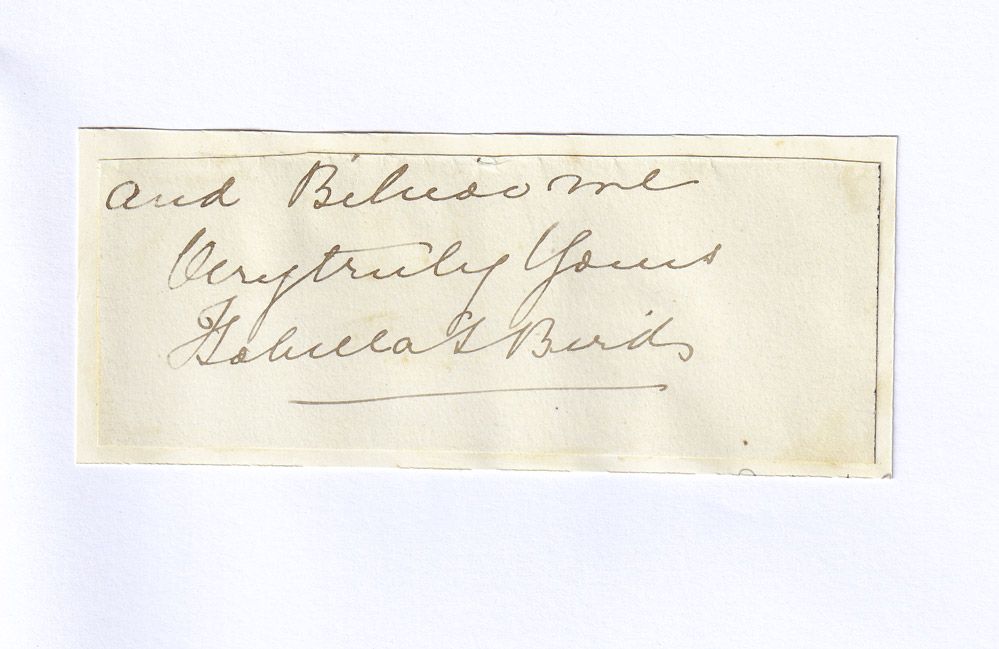 and Believe me
Very truly Yours
Isabella L Bird